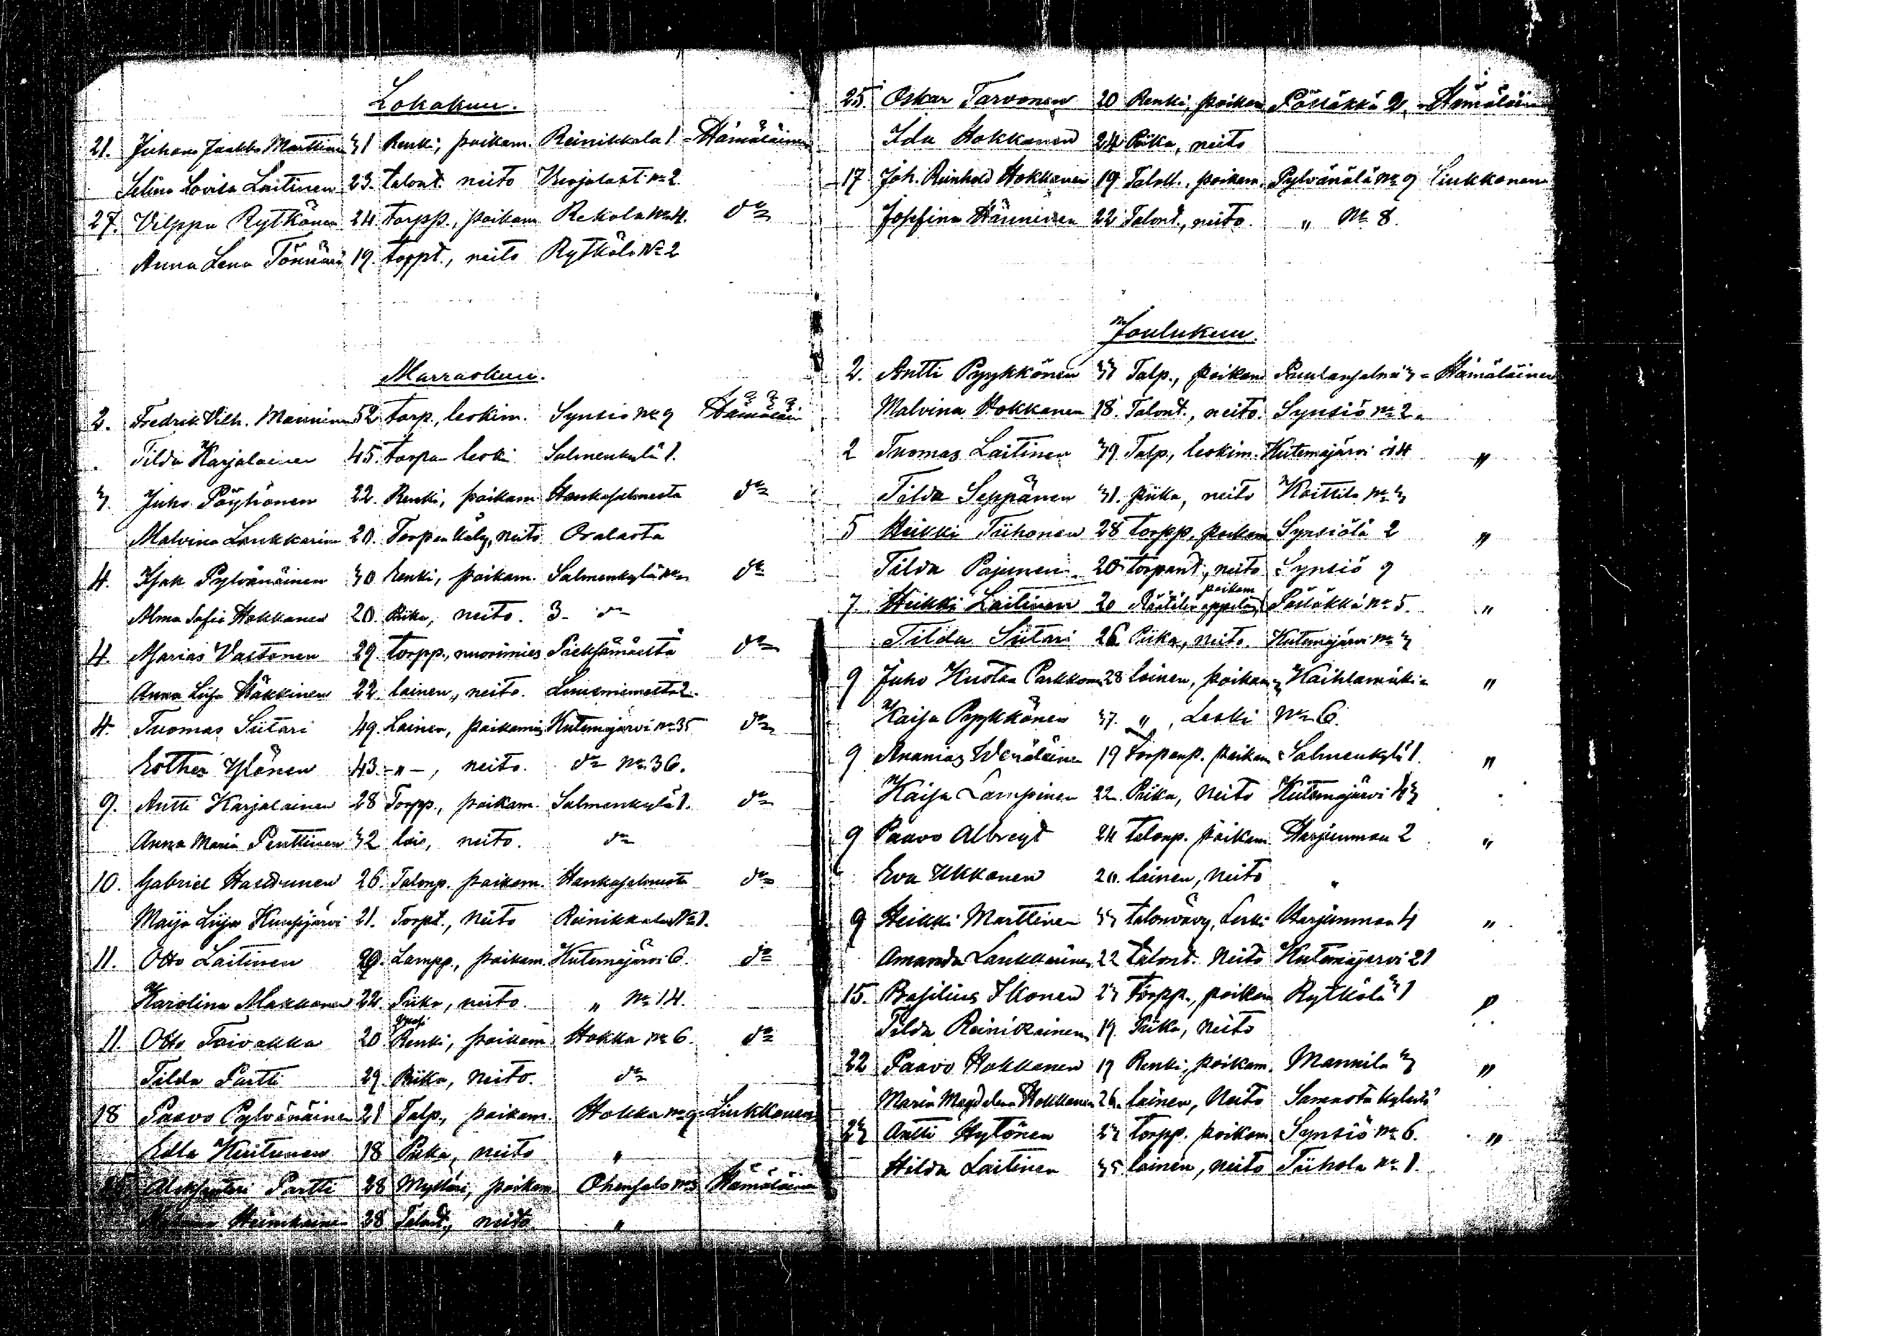 Lokakuu.
21. Juhana Jaakko Marttinen 31 Renki, poikam. Reinikkala 1 Hämäläinen
Selina Lovisa Laitinen 23. talont. neito No 2
27. Vilppu Rytkönen 24 torpp., poikam Rekola No 4. do
Anna Lena 19. torpt., neito Rytkölä No 2
Marraskuu.
2. Fredrik Vilh. Manninen 52 torp., leskim. Synsiö No 9 Hämäläin
Tilda Karjalainen 45. torpan leski Salmenkylä 1.
3. Juho Pöyhönen 22. Renki, poikam Hankasalmesta do
Malvina Laukkarinen 20. Torpan käly, neito
4. Isak Pylvänäinen 30 Renki, poikam. Salmenkylä No do
Alma Sofia Hokkanen 20. Piika, neito. 3 do
4. Asarias Vastonen 29. torpp., nuorimies Pieksämäeltä do
Anna Liisa Häkkinen 22. loinen, neito. 2.
4. Tuomas Siitari 49. Loinen, poikamies Kutemajärvi No 35 do
Esther Ylönen 43. -„-, neito. do No 36.
9. Antti Karjalainen 28 Torpp., poikam. Salmenkylä 1. do
Anna Maria Penttinen 32 lois, neito. do
10. Gabriel 26. Talonp. poikam. Hankasalmesta do
Maija Liisa 21. Torpt., neito Reinikkala No 1.
11. Otto Laitinen 29. Lampp., poikam. Kutemajärvi 6. do
Karolina Makkonen 22. Piika, neito. „ No 14.
11. Otto Toivakka 20. Renki, poikam Hokka No 6. do
Tilda Partti 29. Piika, neito. do
18 Paavo Pylvänäinen 21 Talp., poikam. Hokka No 9 Liukkonen
Edla Kiitunen 18 Piika, neito „
Aleksanteri Partti 28 Mylläri, poikam Ohensalo No 3 Hämäläinen
28 Talont., neito „
25 Oskar Tarvonen 20 Renki, poikam Pössäkkä 2, Hämäläinen
Ida Hokkanen 24 Piika, neito
17 Joh. Reinhold Hokkanen 19 Taloll., poikam. Pylvänälä No 9 Liukkonen
Josefina Hänninen 22 Talont., neito. „ No 8.
Joulukuu.
2. Antti Pyykkönen 31 Talp., poikam 3 = Hämäläinen
Malvina Hokkanen 18. Talont., neito. Synsiö No 2.
2 Tuomas Laitinen 39 Talp., leskim. Kutemajärvi 14 „
Tilda Seppänen 31. Piika, neito Koittila No 3
5 Heikki Tiihonen 28 torpp., poikam Synsiöltä 2 „
Tilda Pajunen 20 torpant., neito Synsiö 9
poikam
7. Heikki Laitinen 20 Räätälin oppilas, Pössäkkä No 5. „
Tilda Siitari 26 Piika, neito. Kutemajärvi No 3
9 Juho Kustaa Parkkonen 28 loinen, poikam, Kaihlamäki „
Kaisa Pyykkönen 37. „, Leski No 6.
9. Ananias Venäläinen 19 torpanp. poikam Salmenkylä 1. „
Kaisa Lampinen 22. Piika, neito Kutemajärvi 43
9 Paavo Albregt 24 talonp. poikam. Harjunmaa 2 „
Eva Ukkonen 20. loinen, neito „
9 Heikki Marttinen 33 talonvävy, Leski Harjunmaa 4 „
Amanda Laukkarinen 22 talont. neito Kutemajärvi 21
15. Basilius Ikonen 23 torpp., poikam Rytkölä 1 „
Tilda Reinikainen 19. Piika, neito
22 Paavo Hokkanen 19 Renki, poikam. Mannila 3 „
Maria Magdalena Hokkanen 26. loinen, neito Samasta kylästä
23 Antti Hytönen 23 torpp. poikam Synsiö No 6. „
Hilda Laitinen 35 loinen, neito Tiihola No 1.